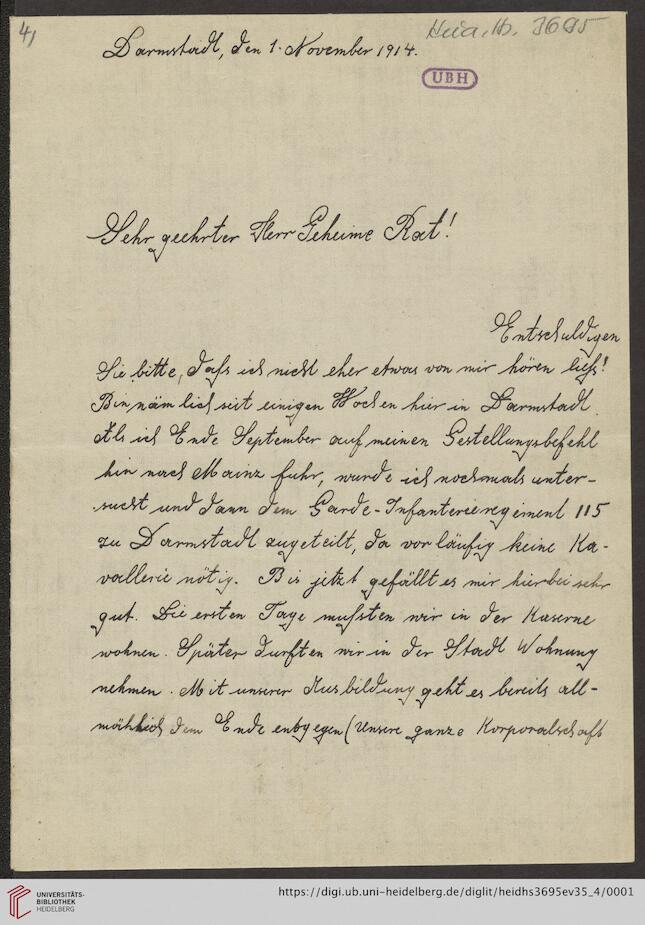 4)
Darmstadt, den 1. November 1914.
Heid. Hs. 3695
UBH
Sehr geehrter Herr Geheime Rat!
Entschuldigen
Sie bitte, dafs ich nicht eher etwas von mir hören liefs!
Bin nämlich seit einigen Wochen hier in Darmstadt.
Als ich Ende September auf meinen Gestellungsbefehl
hin nach Mainz fuhr, wurde ich nochmals unter-
sucht und dann dem Garde-Infanterieregiment 115
zu Darmstadt zugeteilt, da vorläufig keine Ka-
vallerie nötig. Bis jetzt gefällt es mir hierbei sehr
gut. Die ersten Tage mufsten wir in der Kaserne
wohnen. Später durften wir in der Stadt Wohnung
nehmen. Mit unserer Ausbildung geht es bereits all-
mählich dem Ende entgegen (Unsere ganze Korporalschaft
UNIVERSITÄTS-
BIBLIOTHEK
HEIDELBERG
https://digi.ub.uni-heidelberg.de/diglit/heidhs3695ev35_4/0001